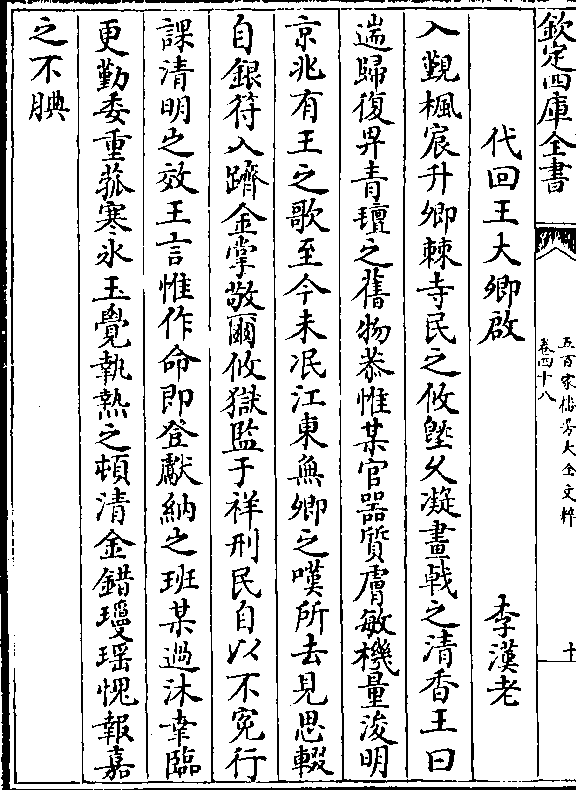 欽定四庫全書
五百家播芳大全文粹
卷四十八
十
代回王大卿啟 李漢老
入覲楓宸升卿棘寺民之攸塈久凝畫戟之清香王曰
遄歸復畀青氊之舊物恭惟某官器質膚敏機量浚明
京兆有王之歌至今未泯江東無卿之嘆所去見思輟
自銀符入躋金掌敬爾攸獄監于祥刑民自以不寃行
課清明之效王言惟作命即登獻納之班某過沐幸臨
更勤委重菰寒氷玉覺執熱之頓清金錯瓊瑶愧報嘉
之不腆